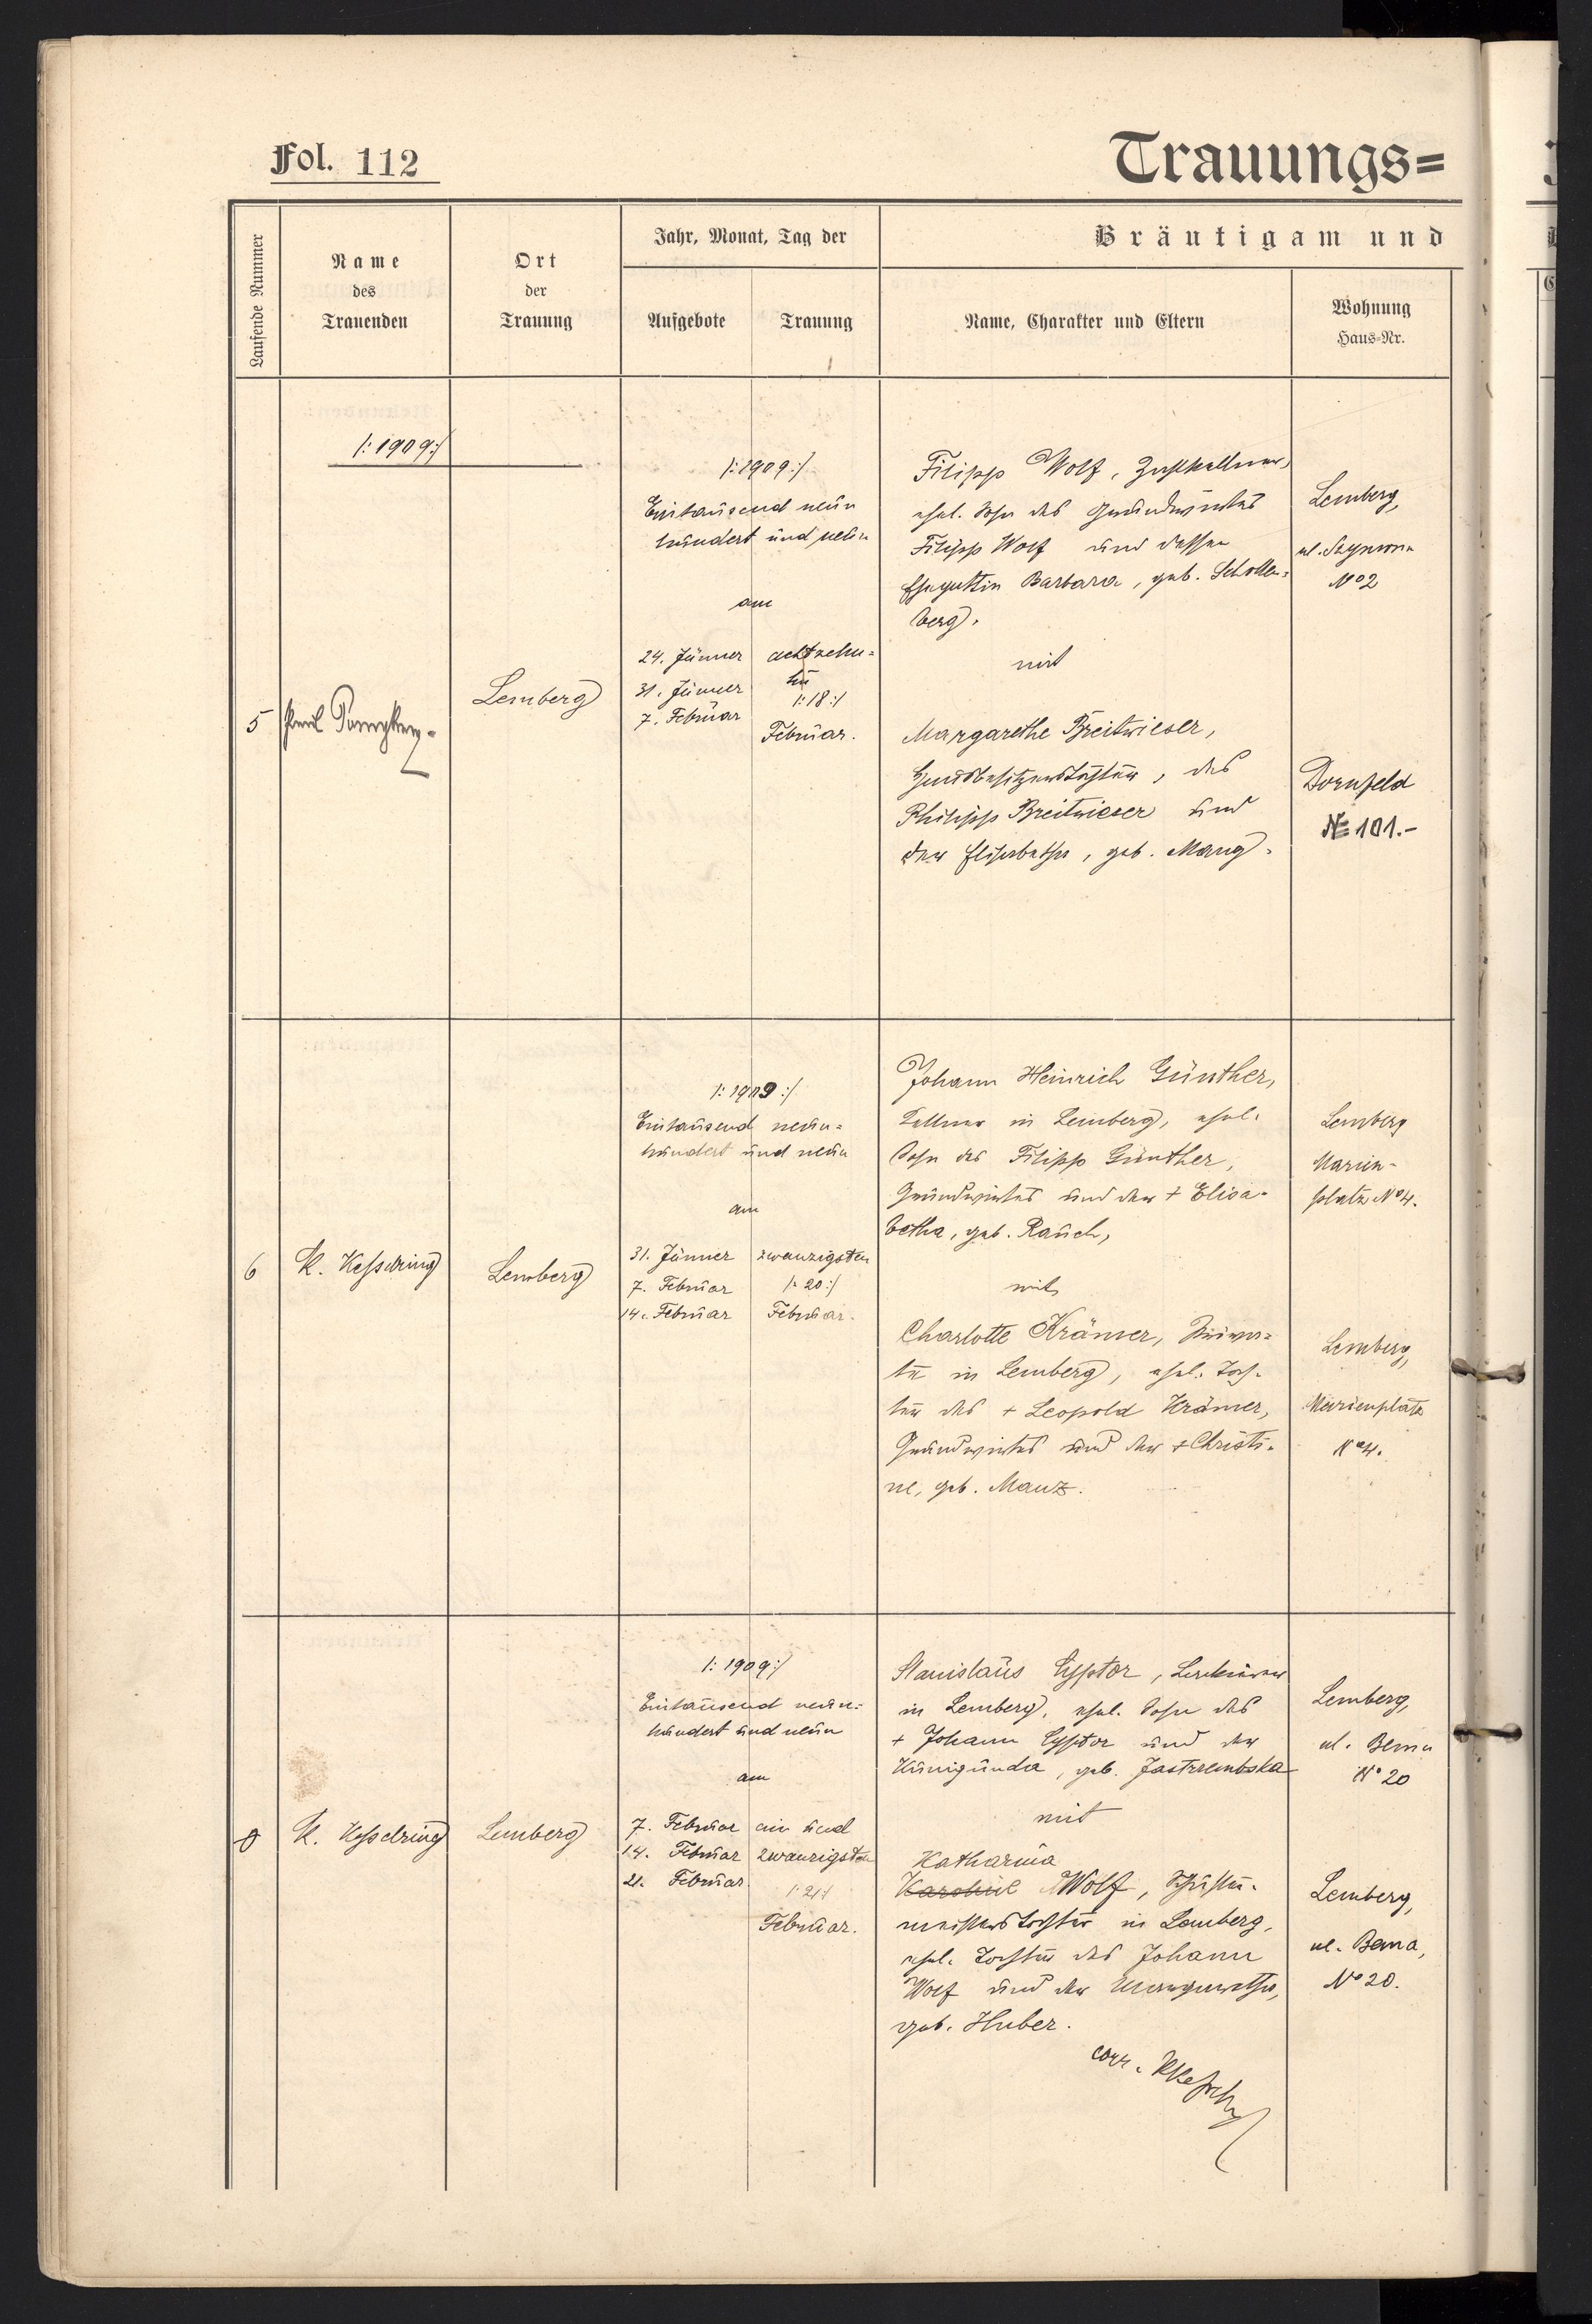 Fol. 112
Trauungs=
Laufende Nummer
Name
des
Trauenden
Ort
der
Trauung
Jahr, Monat, Tag der
Aufgebote
Trauung
Bräutigam und
Name, Charakter und Eltern
Wohnung
Haus-Nr.
/:1909:/
5
Lemberg
/:1909:/
Eintausend neun
hundert und neun
am
24. Jänner
31. Jänner
7. Februar
achtzehn=
ten
/:18:/
Februar.
Filipp Wolf, Zahlkellner,
ehel. Sohn des Grundwirtes
Filipp Wolf und dessen
Ehegattin Barbara, geb. Schollen=
berg.
mit
Margarethe Breitwieser,
Grundbesitzerstochter, des
Philipp Breitwieser und
der Elisabetha, geb. Mang.
Lemberg,
ul.
No 2
Dornfeld
No 101.-
6
K. Kesselring
Lemberg
/:1909:/
Eintausend neun=
hundert und neun
am
31. Jänner
7. Februar
14. Februar
zwanzigsten
/:20:/
Februar.
Johann Heinrich Günther,
Kellner in Lemberg, ehel.
Sohn des Filipp Günther,
Grundwirtes und der + Elisa-
betha, geb. Rauch,
mit
Charlotte Krämer,
in Lemberg, ehel. Toch-
ter des + Leopold Krämer,
Grundwirtes und der + Christi-
ne, geb. Manz.
Lemberg
Marien-
platz No 4.
Lemberg,
Marienplatz
No 4.
K. Kesselring
Lemberg
/:1909:/
Eintausend neun=
hundert und neun
am
7. Februar
14. Februar
21. Februar
ein und
zwanzigsten
/:21:/
Februar.
Stanislaus Cyptor,
in Lemberg, ehel. Sohn des
+ Johann Cyptor und der
Kunigunda, geb. Jastrzembska
mit
Katharina
Karoline Wolf, Schuster-
meisterstochter in Lemberg,
ehel. Tochter des Johann
Wolf und der Margaretha,
geb. Huber.
corr.
Lemberg,
ul. Bema
No 20
Lemberg,
ul. Bema,
No 20.